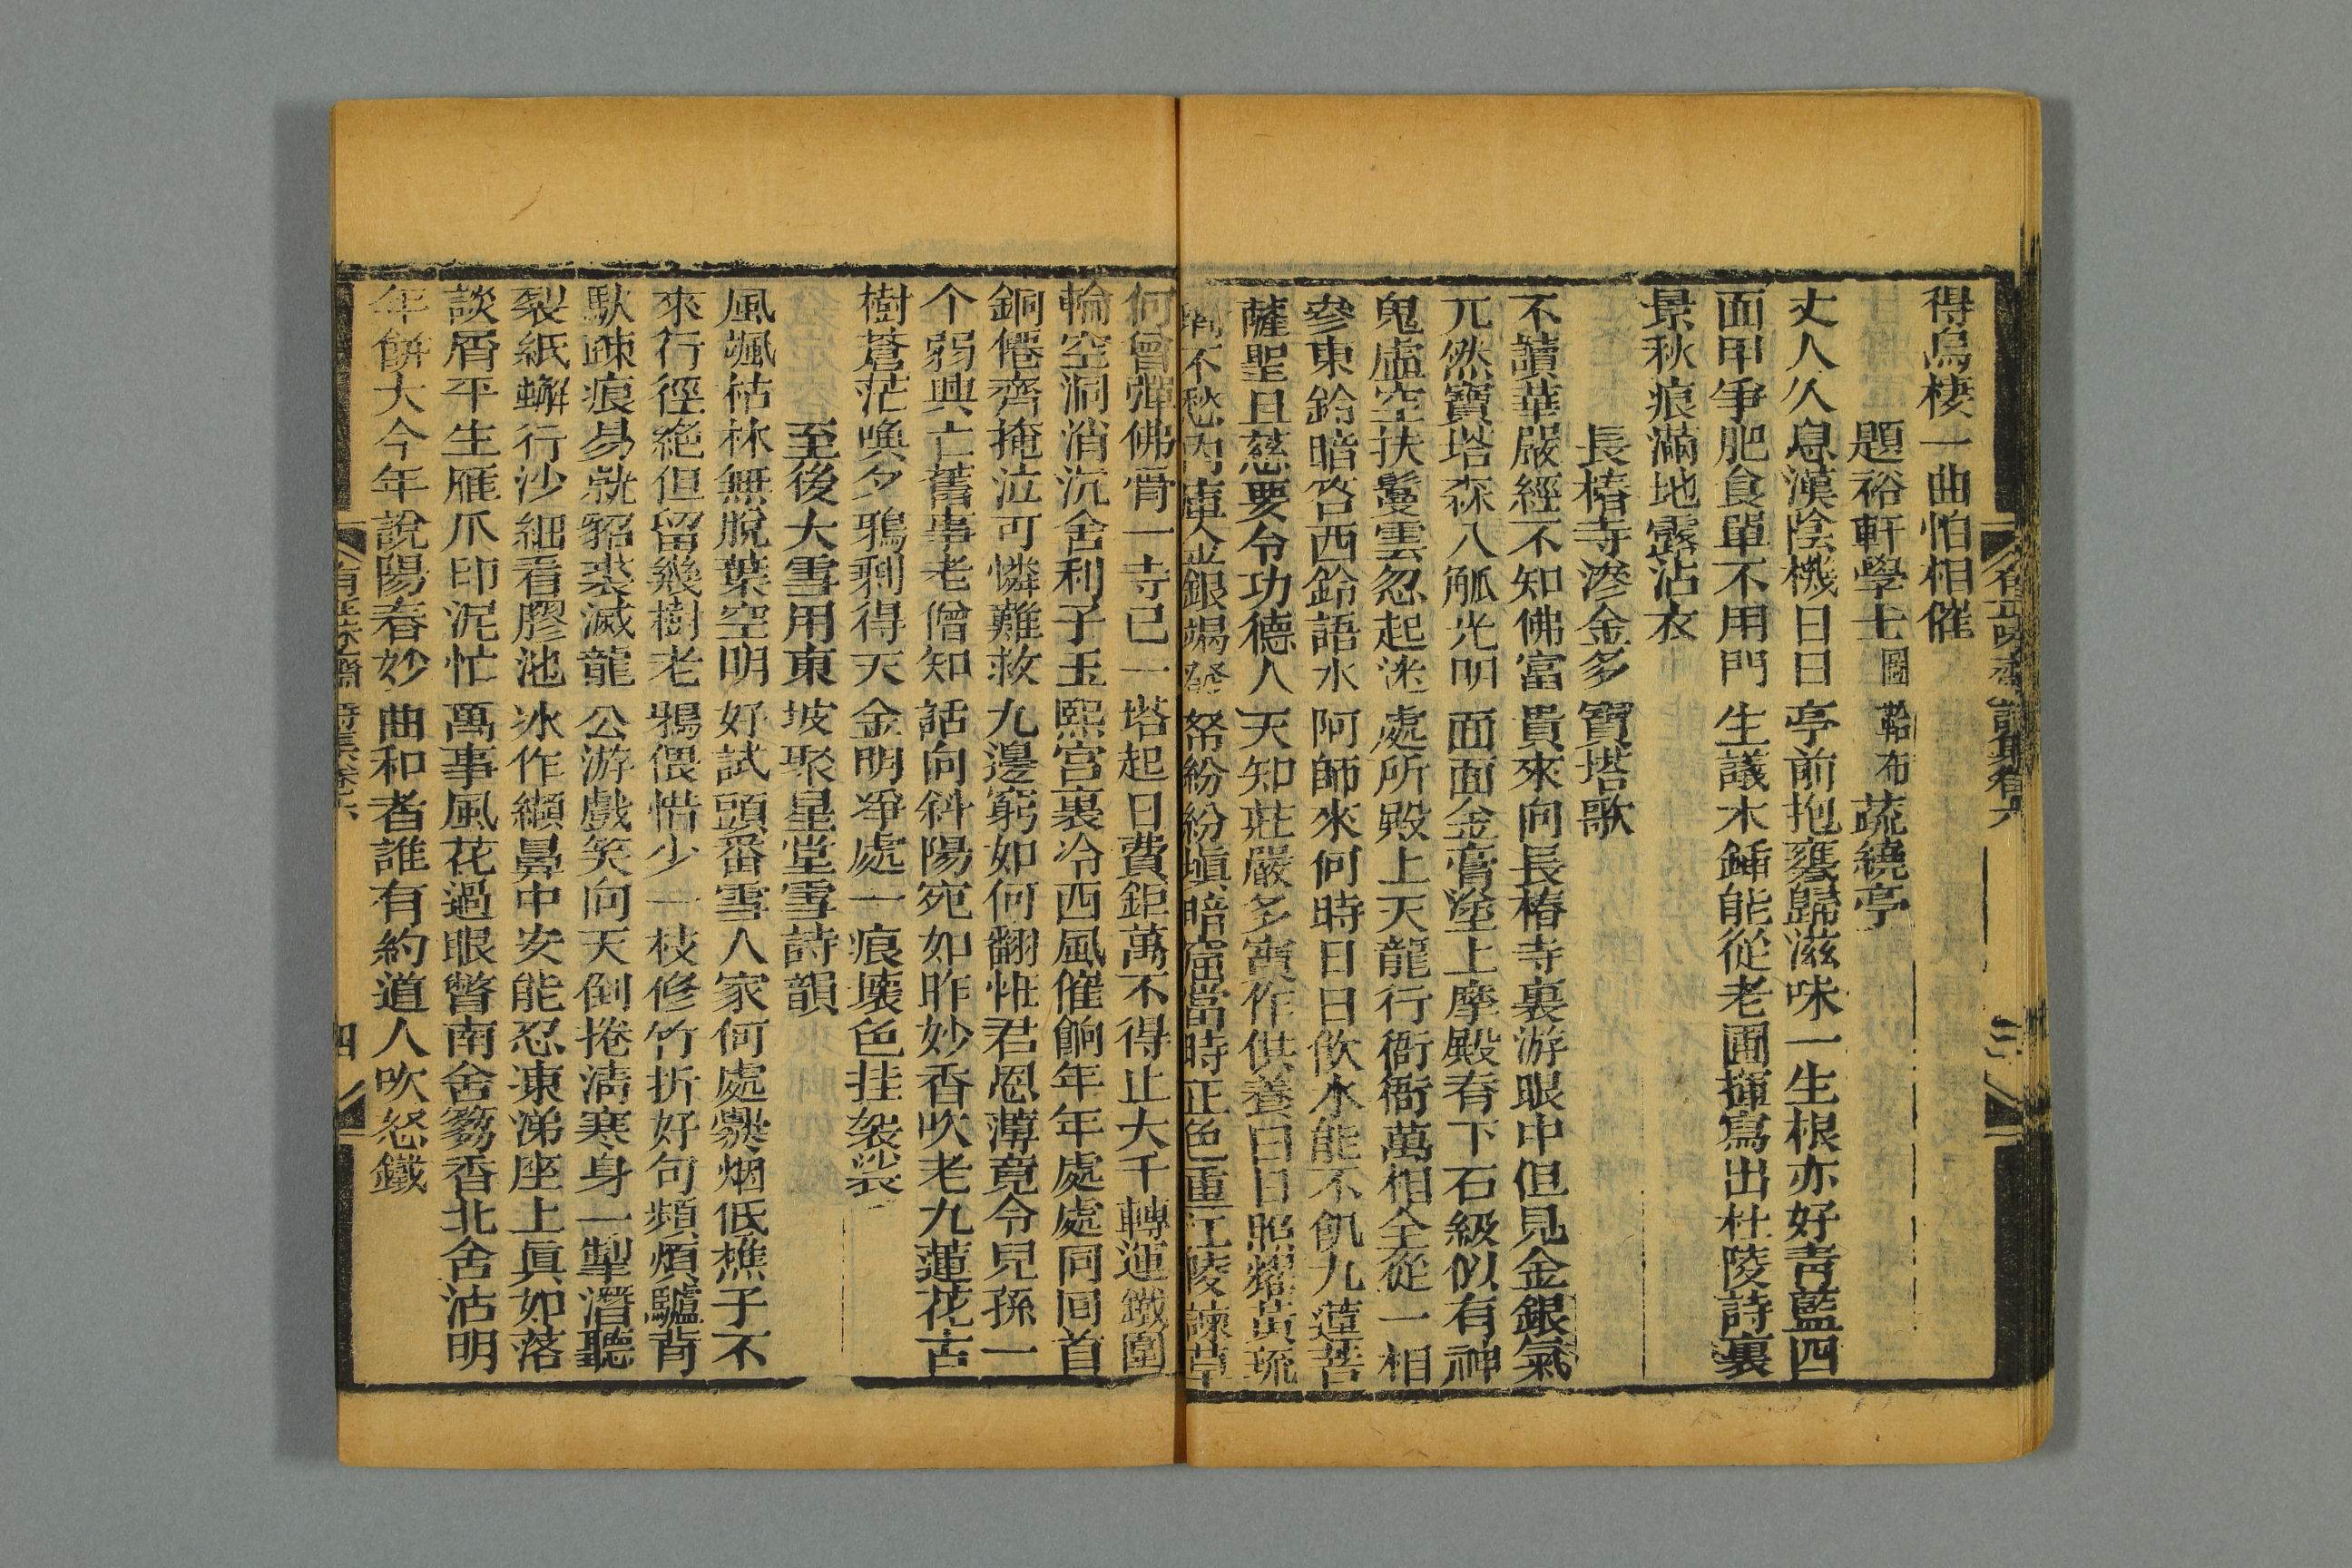 有正味齋詩集卷六
三
得烏棲一曲怕相催
題裕軒學士圖鞈布蔬繞亭
丈人久息漢陰機日日亭前抱甕歸滋味一生根亦好靑藍四
面甲爭肥食單不用門生議木鍤能從老圃揮寫出杜陵詩裏
景秋痕滿地露沾衣
長椿寺滲金多寶塔歌
不讀華嚴經不知佛富貴來向長椿寺裏游眼中但見金銀氣
兀然寶塔森八觚光明面面金膏塗上摩殿脊下石級似有神
鬼虛空扶鬘雲忽起迷處所殿上天龍行衙衙萬相全從一相
參東鈴暗答西鈴語水阿師來何時日日飲水能不飢九蓮菩
薩聖且慈要令功德人天知莊嚴多寶作供養曰日照耀黃琉
璃不愁內庫金銀竭發帑紛紛塡暗窟當時正色重江陵諫草
何曾彈佛骨一寺已一塔起日費鉅萬不得止大千轉運鐵圍
輪空洞消沉舍利子玉熙宮裏冷西風催餉年年處處同回首
銅僊齊掩泣可憐難救九邊窮如何翻惟君恩薄竟令兒孫一
个弱興亡舊事老僧知話向斜陽宛如昨妙香吹老九蓮花古
樹蒼茫喚夕鴉剩得天金明淨處一痕壞色挂袈裟
至後大雪用東坡聚星堂雪詩韻
風颯枯林無脫葉空明好試頭番雪人家何處爨烟低樵子不
來行徑絶但留幾樹老鴉偎惜少一枝修竹折好句頻煩驢背
馱疎痕易就貂裘滅龍公游戲笑向天倒捲淸寒身一掣潛聽
裂紙蠏行沙細看膠池冰作纈鼻中安能忍凍涕座上眞如落
談屑平生雁爪印泥忙萬事風花過眼瞥南舍芻香北舍沽明
年餅大今年說陽春妙曲和者誰有約道人吹怒鐵
有正味齋詩集卷六
四